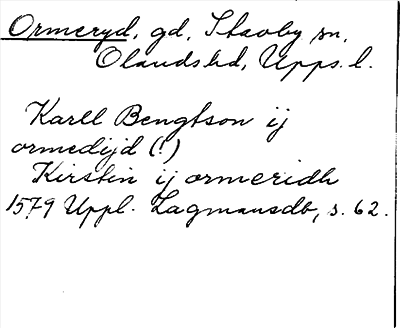 Ormeryd, gd, Stavby sn,
Olands hd, Upps. l.
Karll Bengtson ij
ormedijd (!)
Kirstin ij ormeridh
1579 Uppl. Lagmansdb, s. 62.